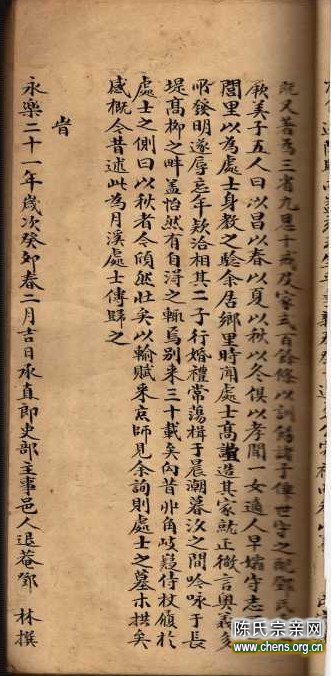 既又著為三省九思十戒及家式百餘條以訓飭諸子俾世守之配鄧氏
厥美子五人曰以昌以春以夏以秋以冬俱以孝聞一女適人早孀守志
閭里以為處士身教之驗余居鄉里時聞處士高誼造其家就正微言奧義多
所發明遂辱忘年欵洽相其二子行婚禮常蕩楫于晨潮暮汐之間吟咏于長
堤高柳之畔盖怡然有自淂之趣焉别来三十載矣向昔丱角岐嶷侍杖履於
處士之側曰以秋者今頎然壯矣以輸賦来京師見余詢則處士之墓木拱矣
感概今昔述此為月溪處士傳歸之
旹
永樂二十一年歲次癸卯春二月吉日承直郎吏部主事邑人退菴鄧林撰
陈氏宗亲网
www.chens.org.cn